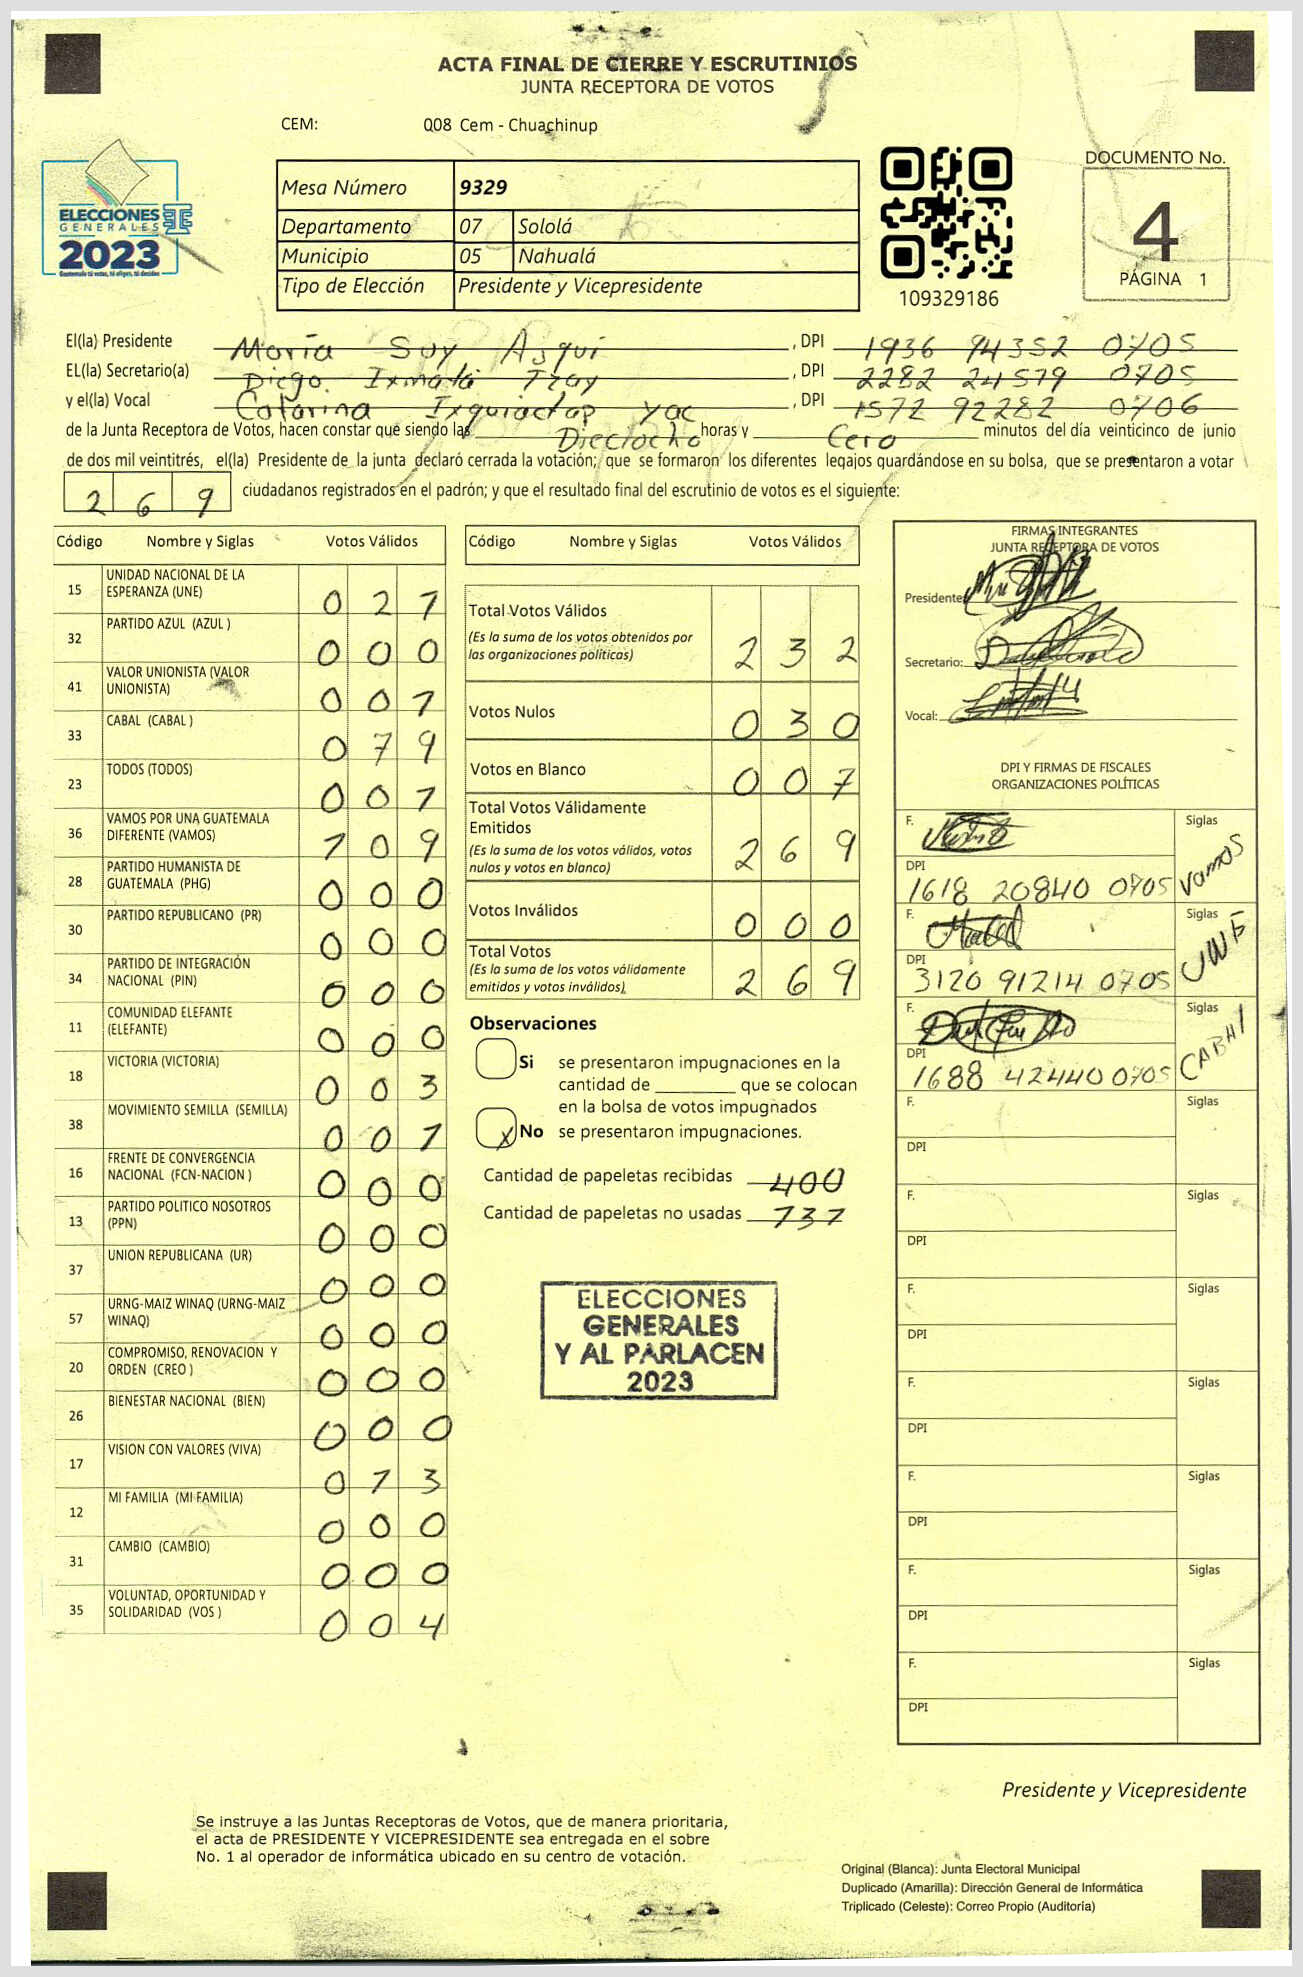 ACTA FINAL DE CIERRE Y ESCRUTINIOS
JUNTA RECEPTORA DE VOTOS
CEM: 008 Cem - Chuachinup
ELECCIONES
GENERALES
2023
Guatemala tú votas, tú eliges, tú decides
Mesa Número 9329
Departamento 07 Sololá
Municipio 05 Nahualá
Tipo de Elección Presidente y Vicepresidente
109329186
DOCUMENTO No.
4
PÁGINA 1
El(la) Presidente María Suy Asqui , DPI 1936 94352 0705
EL(la) Secretario(a) Diego Ixmatá Tzay , DPI 2282 24579 0705
y el(la) Vocal Catarina Ixquiactap yac , DPI 1572 92282 0706
de la Junta Receptora de Votos, hacen constar que siendo las Dieciocho horas y Cero minutos del día veinticinco de junio
de dos mil veintitrés, el(la) Presidente de la junta declaró cerrada la votación; que se formaron los diferentes legajos guardándose en su bolsa, que se presentaron a votar
2 6 9 ciudadanos registrados en el padrón; y que el resultado final del escrutinio de votos es el siguiente:
Código Nombre y Siglas Votos Válidos
15 UNIDAD NACIONAL DE LA ESPERANZA (UNE) 0 2 1
32 PARTIDO AZUL (AZUL ) 0 0 0
41 VALOR UNIONISTA (VALOR UNIONISTA) 0 0 1
33 CABAL (CABAL ) 0 7 9
23 TODOS (TODOS) 0 0 1
36 VAMOS POR UNA GUATEMALA DIFERENTE (VAMOS) 1 0 9
28 PARTIDO HUMANISTA DE GUATEMALA (PHG) 0 0 0
30 PARTIDO REPUBLICANO (PR) 0 0 0
34 PARTIDO DE INTEGRACIÓN NACIONAL (PIN) 0 0 0
11 COMUNIDAD ELEFANTE (ELEFANTE) 0 0 0
18 VICTORIA (VICTORIA) 0 0 3
38 MOVIMIENTO SEMILLA (SEMILLA) 0 0 1
16 FRENTE DE CONVERGENCIA NACIONAL (FCN-NACION ) 0 0 0
13 PARTIDO POLITICO NOSOTROS (PPN) 0 0 0
37 UNION REPUBLICANA (UR) 0 0 0
57 URNG-MAIZ WINAQ (URNG-MAIZ WINAQ) 0 0 0
20 COMPROMISO, RENOVACION Y ORDEN (CREO ) 0 0 0
26 BIENESTAR NACIONAL (BIEN) 0 0 0
17 VISION CON VALORES (VIVA) 0 1 3
12 MI FAMILIA (MI FAMILIA) 0 0 0
31 CAMBIO (CAMBIO) 0 0 0
35 VOLUNTAD, OPORTUNIDAD Y SOLIDARIDAD (VOS ) 0 0 4
Código Nombre y Siglas Votos Válidos
Total Votos Válidos
(Es la suma de los votos obtenidos por
las organizaciones políticas) 2 3 2
Votos Nulos 0 3 0
Votos en Blanco 0 0 7
Total Votos Válidamente
Emitidos
(Es la suma de los votos válidos, votos
nulos y votos en blanco) 2 6 9
Votos Inválidos 0 0 0
Total Votos
(Es la suma de los votos válidamente
emitidos y votos inválidos). 2 6 9
Observaciones
Si se presentaron impugnaciones en la
cantidad de ________ que se colocan
en la bolsa de votos impugnados
x No se presentaron impugnaciones.
Cantidad de papeletas recibidas 400
Cantidad de papeletas no usadas 131
ELECCIONES
GENERALES
Y AL PARLACEN
2023
FIRMAS INTEGRANTES
JUNTA RECEPTORA DE VOTOS
Presidente:
Secretario:
Vocal:
DPI Y FIRMAS DE FISCALES
ORGANIZACIONES POLÍTICAS
F. Siglas Vamos
DPI 1618 20840 0705
F. Siglas UNE
DPI 3120 91214 0705
F. Siglas CABAL
DPI 1688 42440 0705
F. Siglas
DPI
F. Siglas
DPI
F. Siglas
DPI
F. Siglas
DPI
F. Siglas
DPI
F. Siglas
DPI
F. Siglas
DPI
Presidente y Vicepresidente
Se instruye a las Juntas Receptoras de Votos, que de manera prioritaria,
el acta de PRESIDENTE Y VICEPRESIDENTE sea entregada en el sobre
No. 1 al operador de informática ubicado en su centro de votación.
Original (Blanca): Junta Electoral Municipal
Duplicado (Amarilla): Dirección General de Informática
Triplicado (Celeste): Correo Propio (Auditoría)